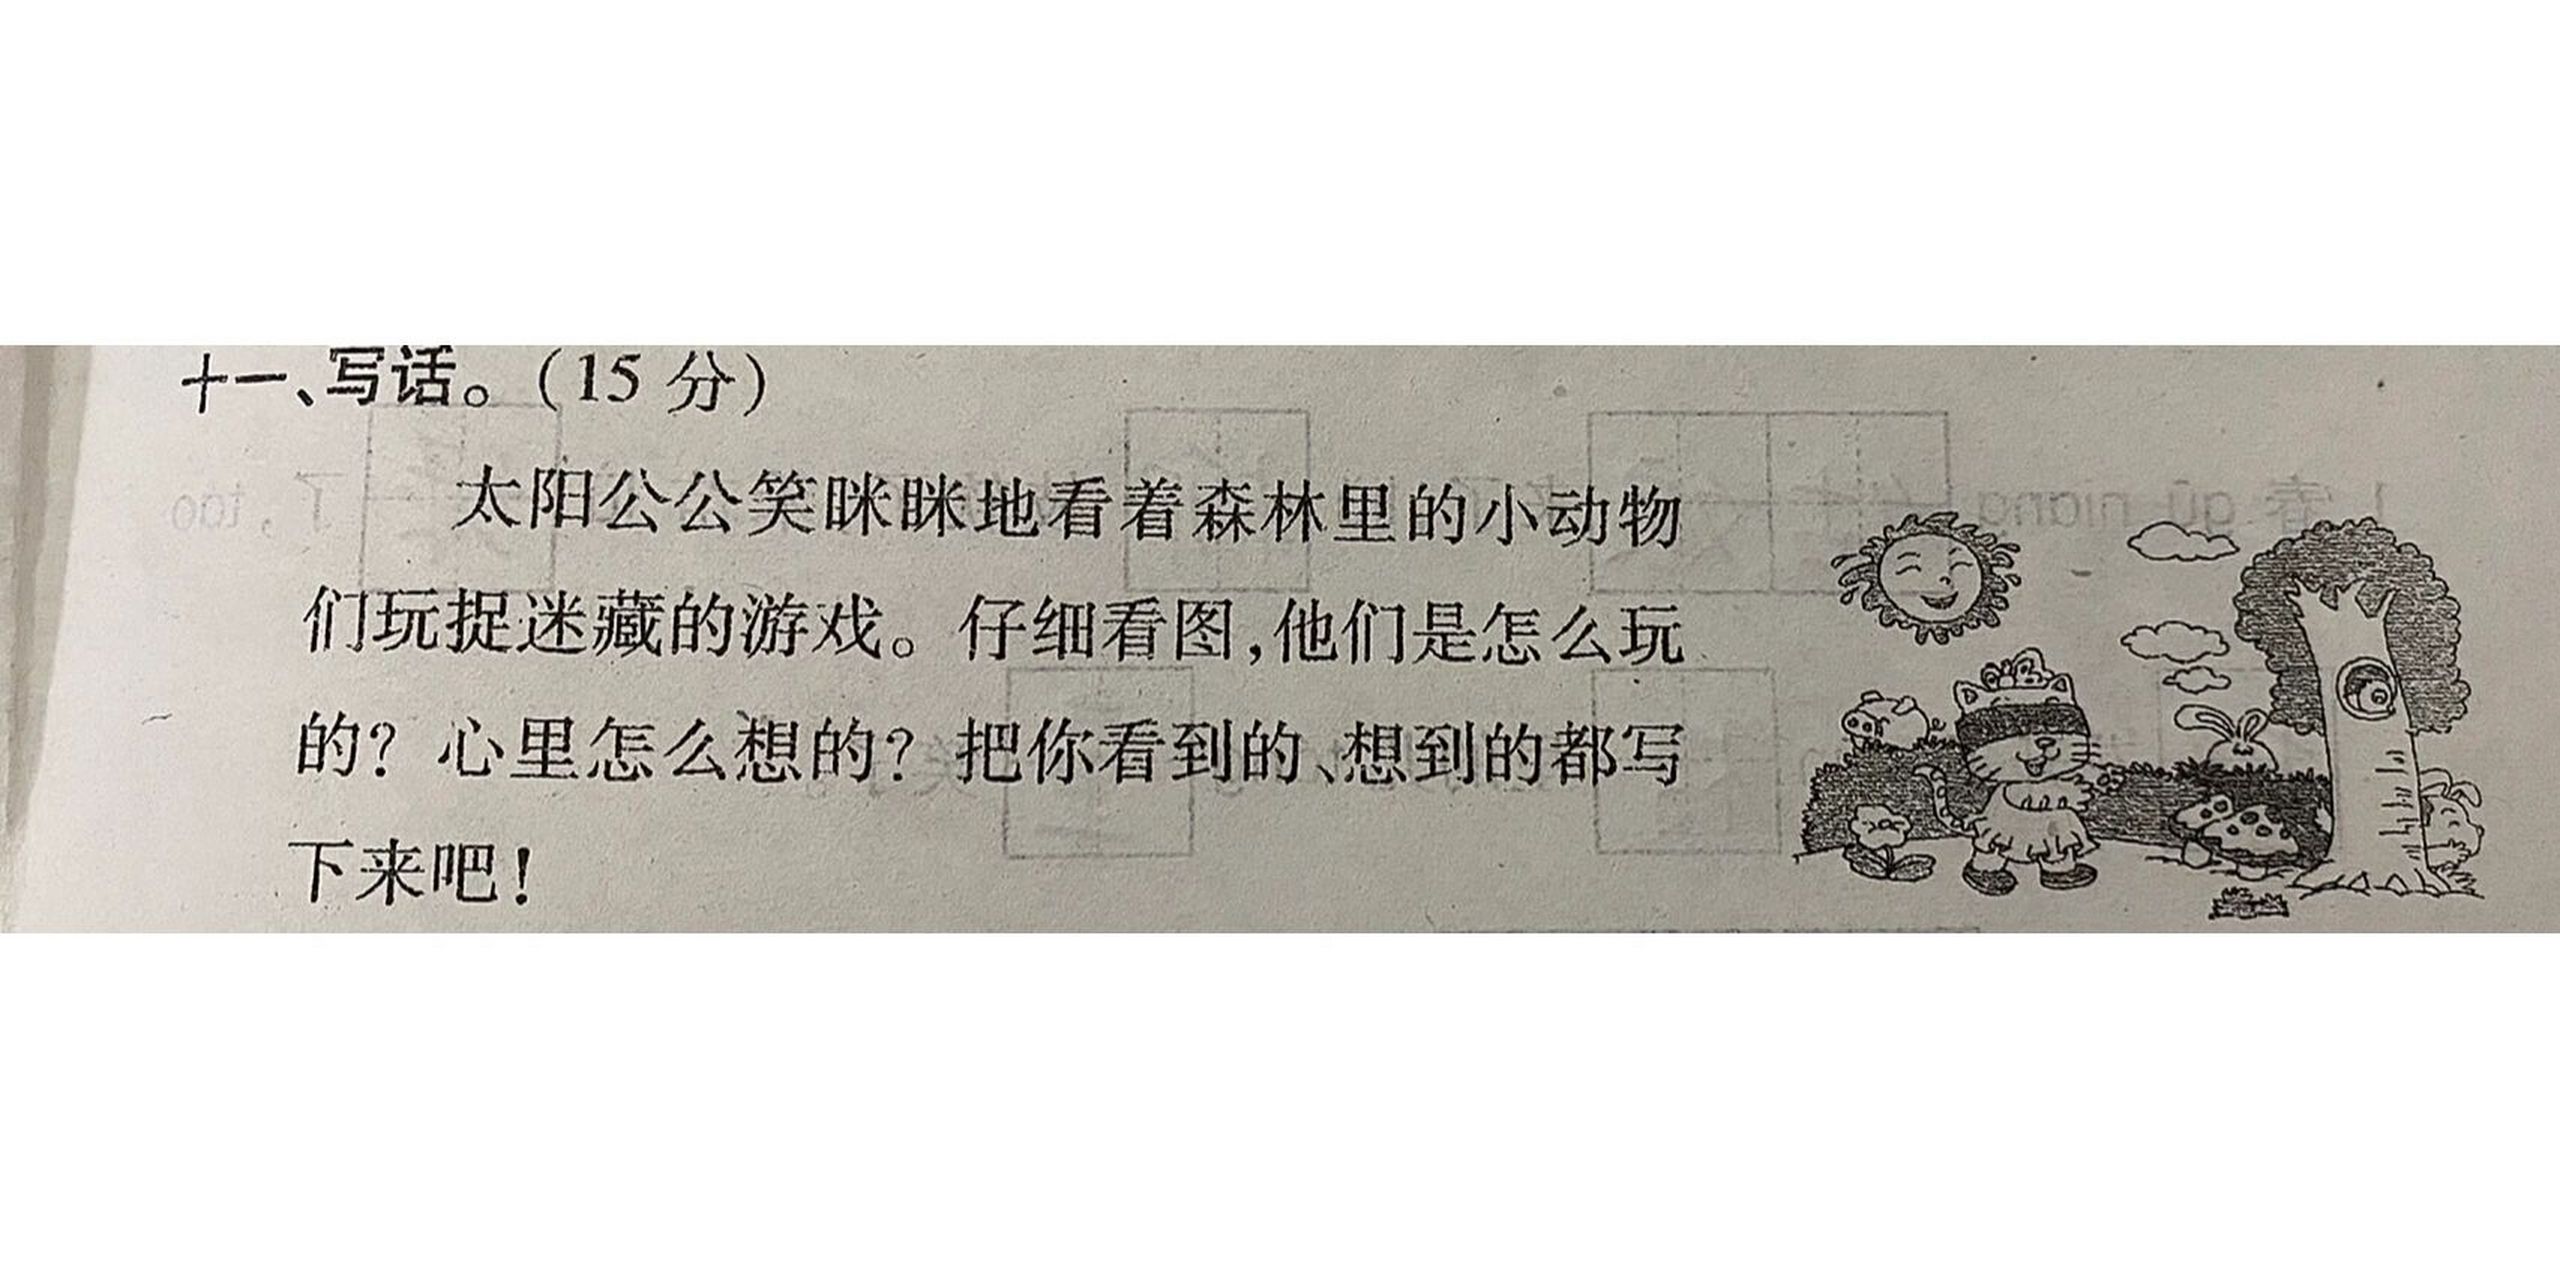 十一、写话。(15 分)
太阳公公笑眯眯地看着森林里的小动物
们玩捉迷藏的游戏。仔细看图,他们是怎么玩
的?心里怎么想的?把你看到的、想到的都写
下来吧!